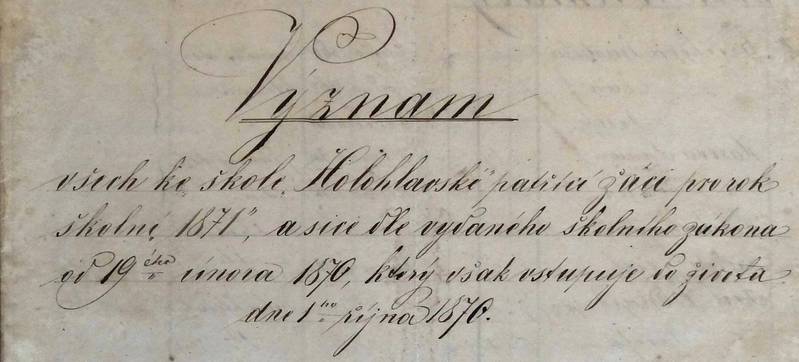 Význam
všech ke škole „Holohlavské" patřící žáci pro rok
školní „1871", a sice dle vydaného školního zákona
od 19ého února 1870, který však vstupuje do života
dne 1ho října 1870.